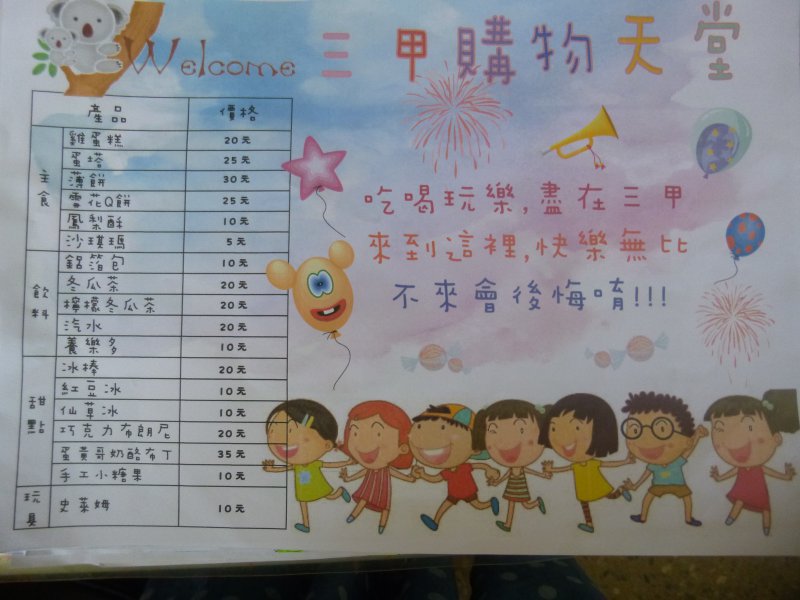 Welcome 三甲購物天堂
產品 價格
主食
雞蛋糕 20元
蛋塔 25元
薄餅 30元
雪花Q餅 25元
鳳梨酥 10元
沙琪瑪 5元
飲料
鋁箔包 10元
冬瓜茶 20元
檸檬冬瓜茶 20元
汽水 20元
養樂多 10元
甜點
冰棒 20元
紅豆冰 10元
仙草冰 10元
巧克力布朗尼 20元
蛋黃哥奶酪布丁 35元
手工小糖果 10元
玩具
史萊姆 10元
吃喝玩樂,盡在三甲
來到這裡,快樂無比
不來會後悔唷!!!